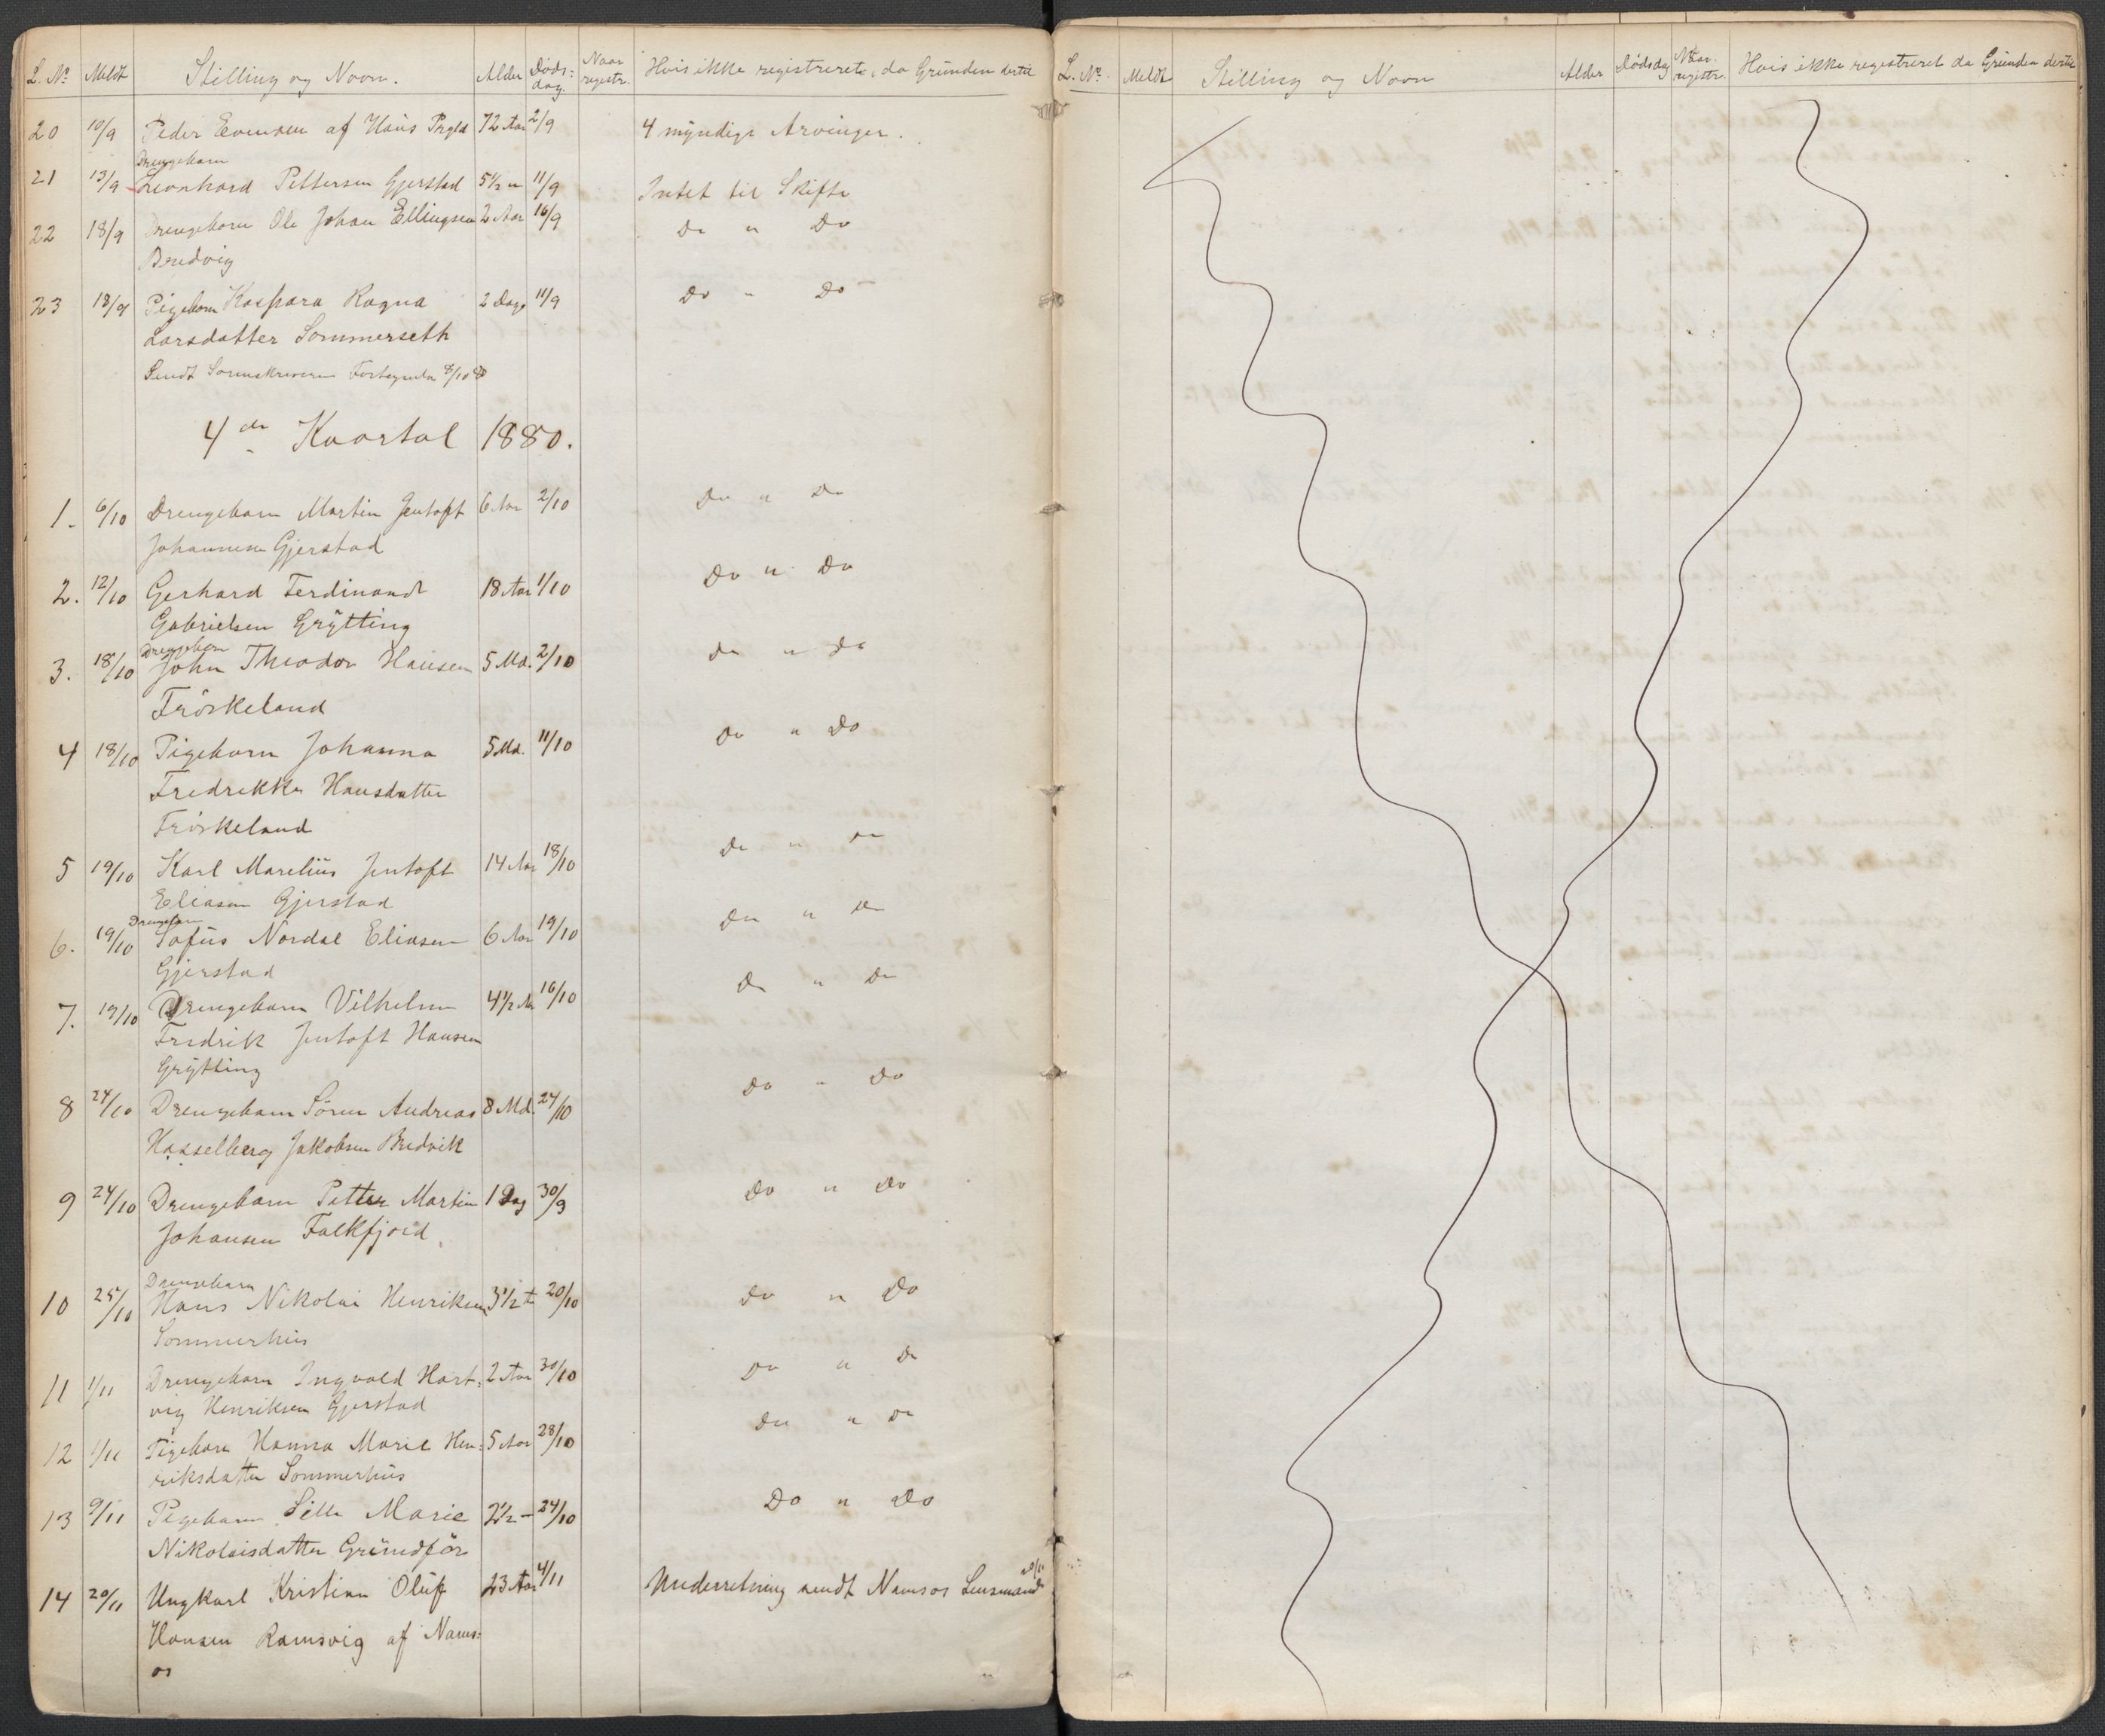 L. No Meldt Stilling og Navn. Alder Døds: dag Naar registr. Hvis ikke registreret, da Grunden dertil
20 10/9 Peder Evensen af Haus 72 Aar 2/9 4 myndige Arvinger.
Drengebarn
21 13/9 Leonhard Pettersen Gjerstad 5 1/2 " 11/9 Intet til Skifte
22 18/9 Drengebarn Ole Johan Ellingsen 2 Aar 16/9 Do " Do
Bredvig
23 18/9 Pigebarn Kaspara Ragna 2 Dage 11/9 Do " Do
Larsdatter Sommerseth
Sendt Sorenskriveren Fortegnelse 8/10 80
4de Kvartal 1880.
1. 6/10 Drengebarn Martin Jentoft 6 Aar 2/10 Do " Do
Johannesen Gjerstad
2. 12/10 Gerhard Ferdinand 18 Aar 1/10 Do " Do
Gabrielsen Grytting
Drengebarn
3. 18/10 John Theodor Hansen 5 Md. 2/10 Do " Do
Frøskeland
4 18/10 Pigebarn Johanna 5 Md. 11/10 Do " Do
Fredrikke Hansdatter
Frøskeland
5 19/10 Karl Marelius Jentoft 14 Aar 18/10 Do " Do
Eliasen Gjerstad
Drengebarn
6. 19/10 Sofus Nordal Eliasen 6 Aar 19/10 Do " Do
Gjerstad
7. 19/10 Drengebarn Vilhelm 4 1/2 Aar 16/10 Do " Do
Fredrik Jentoft Hansen
Grytting
8 24/10 Drengebarn Søren Andreas 8 Md. 24/10 Do " Do
Hasselberg Jakobsen Bredvik
9 24/10 Drengebarn Petter Martin 1 Dag 30/9 Do " Do
Johansen Falkfjord
Drengebarn
10 25/10 Hans Nikolai Henriksen 3 1/2 20/10 Do " Do
Sommerhus
11 1/11 Drengebarn Ingvald Hart: 2 Aar 30/10 Do " Do
vig Henriksen Gjerstad
12 1/11 Pigebarn Hanna Marie Hen: 5 Aar 28/10 Do " Do
riksdatter Sommerhus
13 9/11 Pigebarn Marie 2 1/2 - 24/10 Do " Do
Nikolaisdatter Grundfør
14 20/11 Ungkarl Kristian Oluf 23 Aar 4/11 Underretning sendt Namsos Lensmand 20/11
Hansen Ramsvig af Nams:
os
L. No. Meldt Stilling og Navn Alder Dødsdag Naar registr. Hvis ikke registreret da Grunden dertil